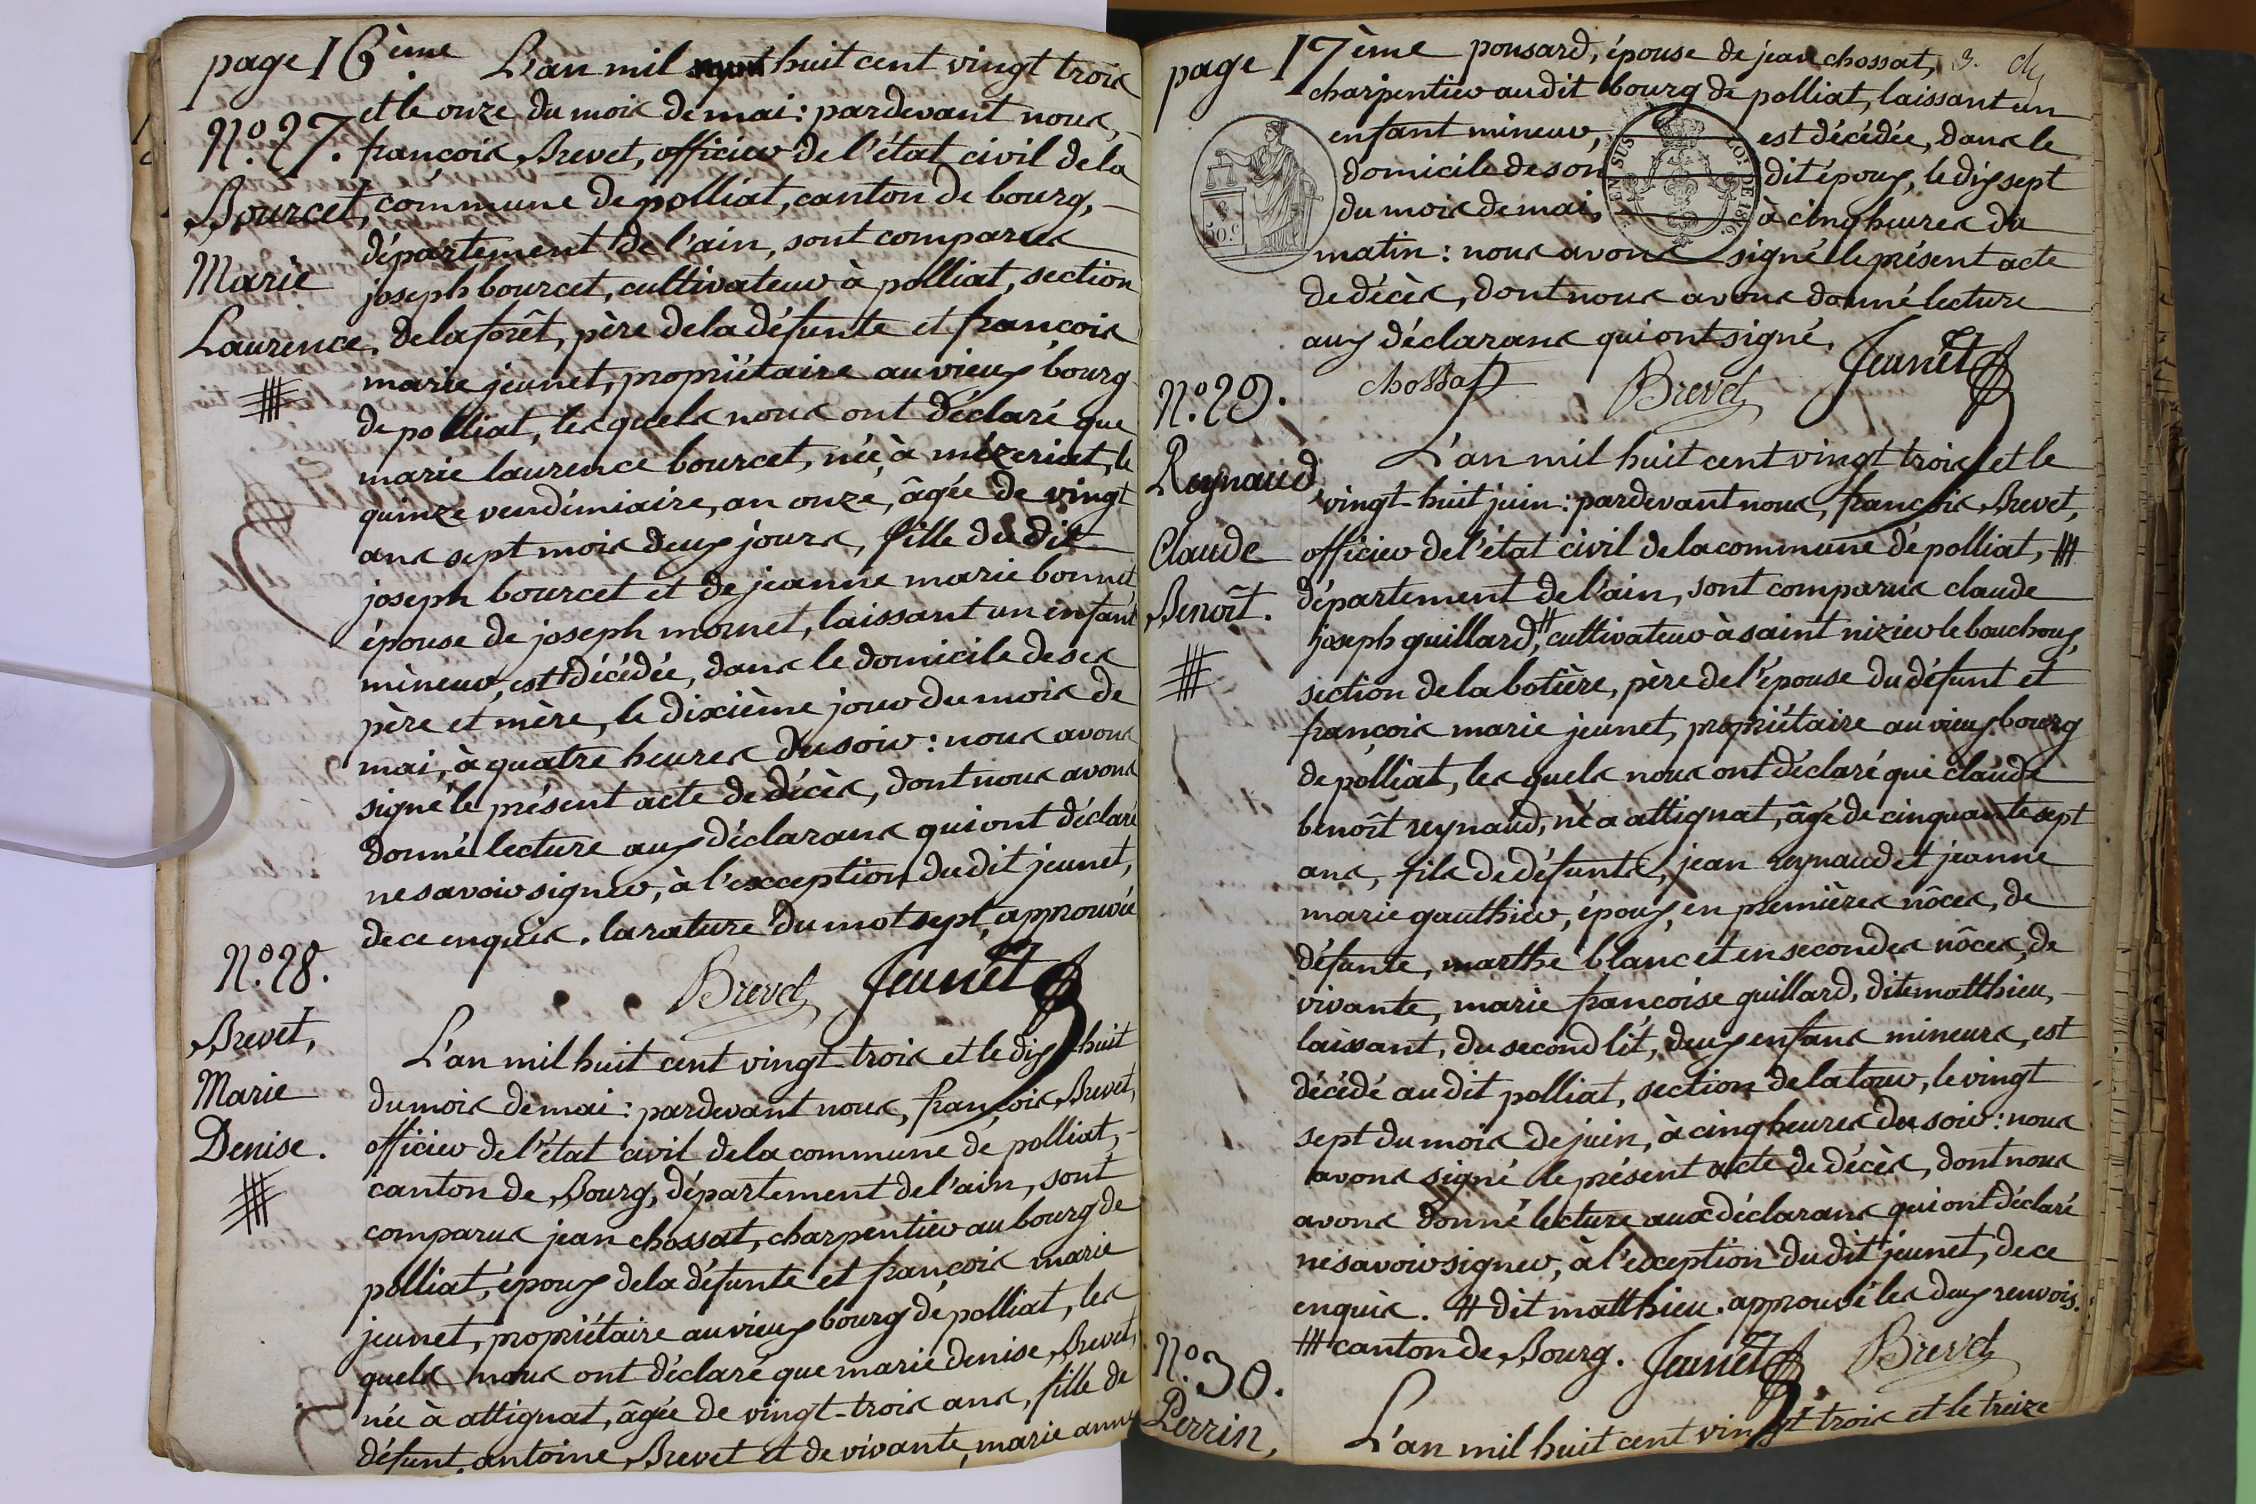 page 16ème L'an mil huit cent vingt trois
et le onze du mois de mai : pardevant nous,
N.º 27. françois Brevet, officier de l'état civil de la
Bourcet, commune de polliat, canton de bourg,
département de l'ain, sont comparus
Marie joseph bourcet, cultivateur à polliat, section
Laurence. de la forêt, père de la défunte et françois
marie jeunet, propriétaire au vieux bourg
de polliat, les quels nous ont déclaré que
marie laurence bourcet, née à mézeriat, le
quinze vendémiaire, an onze, âgée de vingt
ans sept mois deux jours, fille du dit
joseph bourcet et de jeanne marie bonnet
épouse de joseph mornet, laissant un enfant
mineur, est décédée, dans le domicile de ses
père et mère, le dixième jour du mois de
mai, à quatre heures du soir : nous avons
signé le présent acte de décès, dont nous avons
donné lecture aux déclarans qui ont déclaré
ne savoir signer, à l'exception du dit jeunet,
de ce enquis. la rature du mot sept, approuvée
Brevet Jeunet
N.º 28.
Brevet, L'an mil huit cent vingt-trois et le dix-huit
Marie du mois de mai : pardevant nous, françois Brevet,
Denise. officier de l'état civil de la commune de polliat,
canton de Bourg, département de l'ain, sont
comparus jean chossat, charpentier au bourg de
polliat, époux de la défunte et françois marie
jeunet, propriétaire au vieux bourg de polliat, les
quels nous ont déclaré que marie denise Brevet,
née à attignat, âgée de vingt-trois ans, fille de
défunt antoine Brevet et de vivante, marie anne
page 17ème ponsard, épouse de jean chossat,
charpentier au dit bourg de polliat, laissant un
enfant mineur, est décédée, dans le
domicile de son dit époux, le dix sept
du mois de mai, à cinq heures du
matin : nous avons signé le présent acte
de décès, dont nous avons donné lecture
aux déclarans qui ont signé.
chossat Brevet Jeunet
N.º 29.
L'an mil huit cent vingt trois et le
Reynaud vingt-huit juin : pardevant nous, françois Brevet,
Claude officier de l'état civil de la commune de polliat, #
Benoît. département de l'ain, sont comparus claude
joseph guillard, # cultivateur à saint nizier le bouchoux,
section de la botière, père de l'épouse du défunt et
françois marie jeunet, propriétaire au vieux bourg
de polliat, les quels nous ont déclaré que claude
benoît reynaud, né à attignat, âgé de cinquante sept
ans, fils de défunts, jean reynaud et jeanne
marie gauthier, époux, en premières nôces, de
défunte, marthe blanc et en secondes nôces, de
vivante, marie françoise guillard, dite matthieu,
laissant, du second lit, deux enfans mineurs, est
décédé au dit polliat, section de la tour, le vingt
sept du mois de juin, à cinq heures du soir : nous
avons signé le présent acte de décès, dont nous
avons donné lecture aux déclarans qui ont déclaré
ne savoir signer, à l'exception du dit jeunet, de ce
enquis. # dit matthieu. approuvé les deux renvois.
# canton de Bourg. Jeunet Brevet
N.º 30.
Perrin, L'an mil huit cent vingt trois et le treize
EN SUS LOI DE 1816.